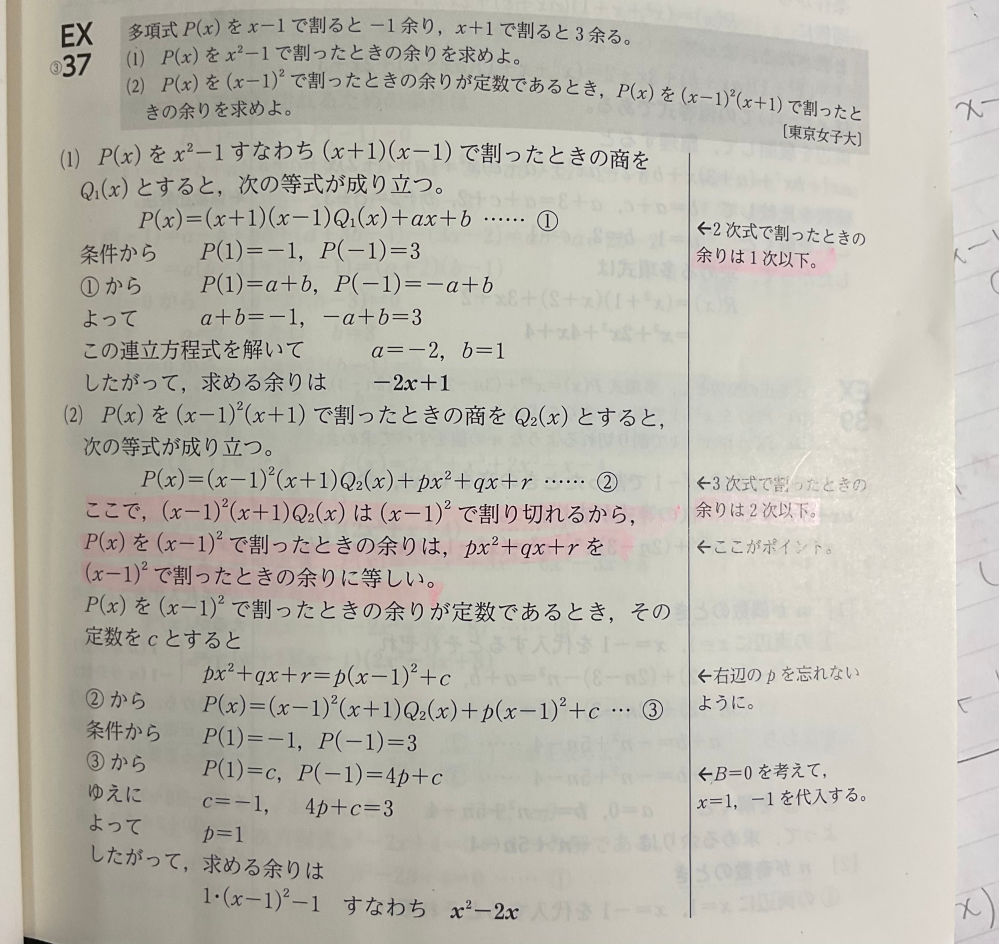 EX
③37
多項式 P(x) を x−1 で割ると −1 余り，x+1 で割ると 3 余る。
(1) P(x) を x²−1 で割ったときの余りを求めよ。
(2) P(x) を (x−1)² で割ったときの余りが定数であるとき，P(x) を (x−1)²(x+1) で割ったと
きの余りを求めよ。
[東京女子大]
(1) P(x) を x²−1 すなわち (x+1)(x−1) で割ったときの商を
Q₁(x) とすると，次の等式が成り立つ。
P(x)=(x+1)(x−1)Q₁(x)+ax+b …… ①
←2 次式で割ったときの
余りは 1 次以下。
条件から P(1)=−1，P(−1)=3
①から P(1)=a+b，P(−1)=−a+b
よって a+b=−1，−a+b=3
この連立方程式を解いて a=−2，b=1
したがって，求める余りは −2x+1
(2) P(x) を (x−1)²(x+1) で割ったときの商を Q₂(x) とすると，
次の等式が成り立つ。
P(x)=(x−1)²(x+1)Q₂(x)+px²+qx+r …… ②
←3 次式で割ったときの
余りは 2 次以下。
ここで，(x−1)²(x+1)Q₂(x) は (x−1)² で割り切れるから，
P(x) を (x−1)² で割ったときの余りは，px²+qx+r を
←ここがポイント。
(x−1)² で割ったときの余りに等しい。
P(x) を (x−1)² で割ったときの余りが定数であるとき，その
定数を c とすると
px²+qx+r=p(x−1)²+c
←右辺の p を忘れない
ように。
②から P(x)=(x−1)²(x+1)Q₂(x)+p(x−1)²+c … ③
条件から P(1)=−1，P(−1)=3
③から P(1)=c，P(−1)=4p+c
←B=0 を考えて，
x=1，−1 を代入する。
ゆえに c=−1， 4p+c=3
よって p=1
したがって，求める余りは
1·(x−1)²−1 すなわち x²−2x